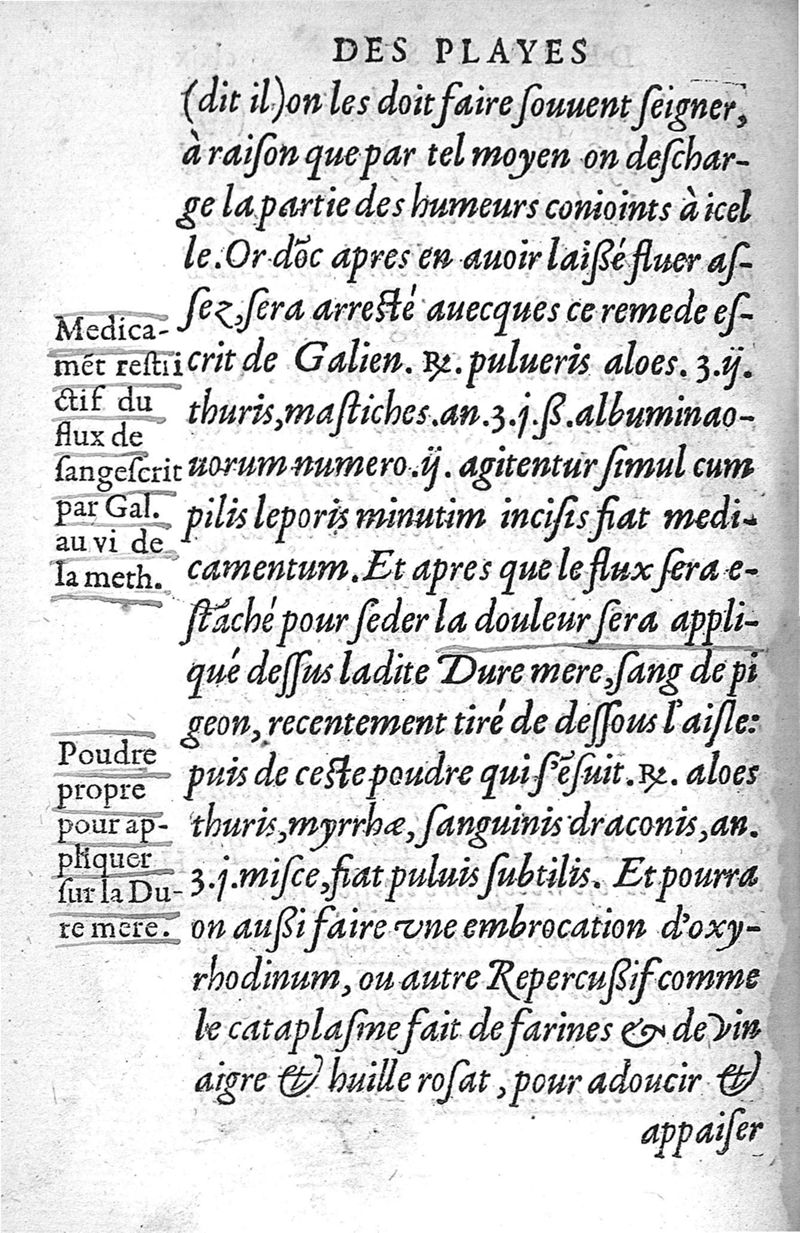 DES PLAYES
(dit il) on les doit faire ſouuent ſeigner,
à raiſon que par tel moyen on deſchar-
ge la partie des humeurs conioints à icel
le. Or dõc apres en auoir laißé fluer aſ-
ſez, ſera arreſté auecques ce remede eſ-
crit de Galien. ℞. pulueris aloes. ʒ.ij.
thuris, maſtiches. an. ʒ.j.ß. albumina o-
uorum numero .ij. agitentur ſimul cum
pilis leporis minutim inciſis fiat medi-
camentum. Et apres que le flux ſera e-
ſtãché pour ſeder la douleur ſera appli-
qué deſſus ladite Dure mere, ſang de pi
geon, recentement tiré de deſſous l'aiſle:
puis de ceſte poudre qui s'ẽſuit. ℞. aloes
thuris, myrrhæ, ſanguinis draconis, an.
ʒ.j. miſce, fiat puluis ſubtilis. Et pourra
on außi faire vne embrocation d'oxy-
rhodinum, ou autre Repercußif comme
le cataplaſme fait de farines & de vin
aigre & huille roſat, pour adoucir &
appaiſer
Medica-
mẽt reſtri
ctif du
flux de
ſang eſcrit
par Gal.
au vi de
la meth.
Poudre
propre
pour ap-
pliquer
ſur la Du-
re mere.